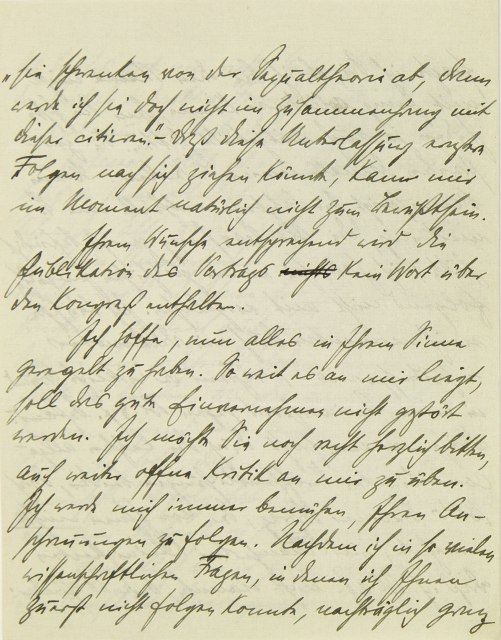 „sie schwenken von der Sexualtheorie ab, dann
werde ich sie doch nicht im Zusammenhang mit
dieser citieren.“ – Daß diese Unterlassung ernstere
Folgen nach sich ziehen könnte, kam mir
im Moment natürlich nicht zum Bewußtsein.
Ihrem Wunsche entsprechend wird die
Publikation des Vortrags nichts kein Wort über
den Kongreß enthalten.
Ich hoffe, nun alles in Ihrem Sinne
geregelt zu haben. So weit es an mir liegt,
soll das gute Einvernehmen nicht gestört
werden. Ich möchte Sie noch recht herzlich bitten,
auch weiter offene Kritik an mir zu üben.
Ich werde mich immer bemühen, Ihren An-
schauungen zu folgen. Nachdem ich in so vielen
wissenschaftlichen Fragen, in denen ich Ihnen
zuerst nicht folgen konnte, nachträglich ganz